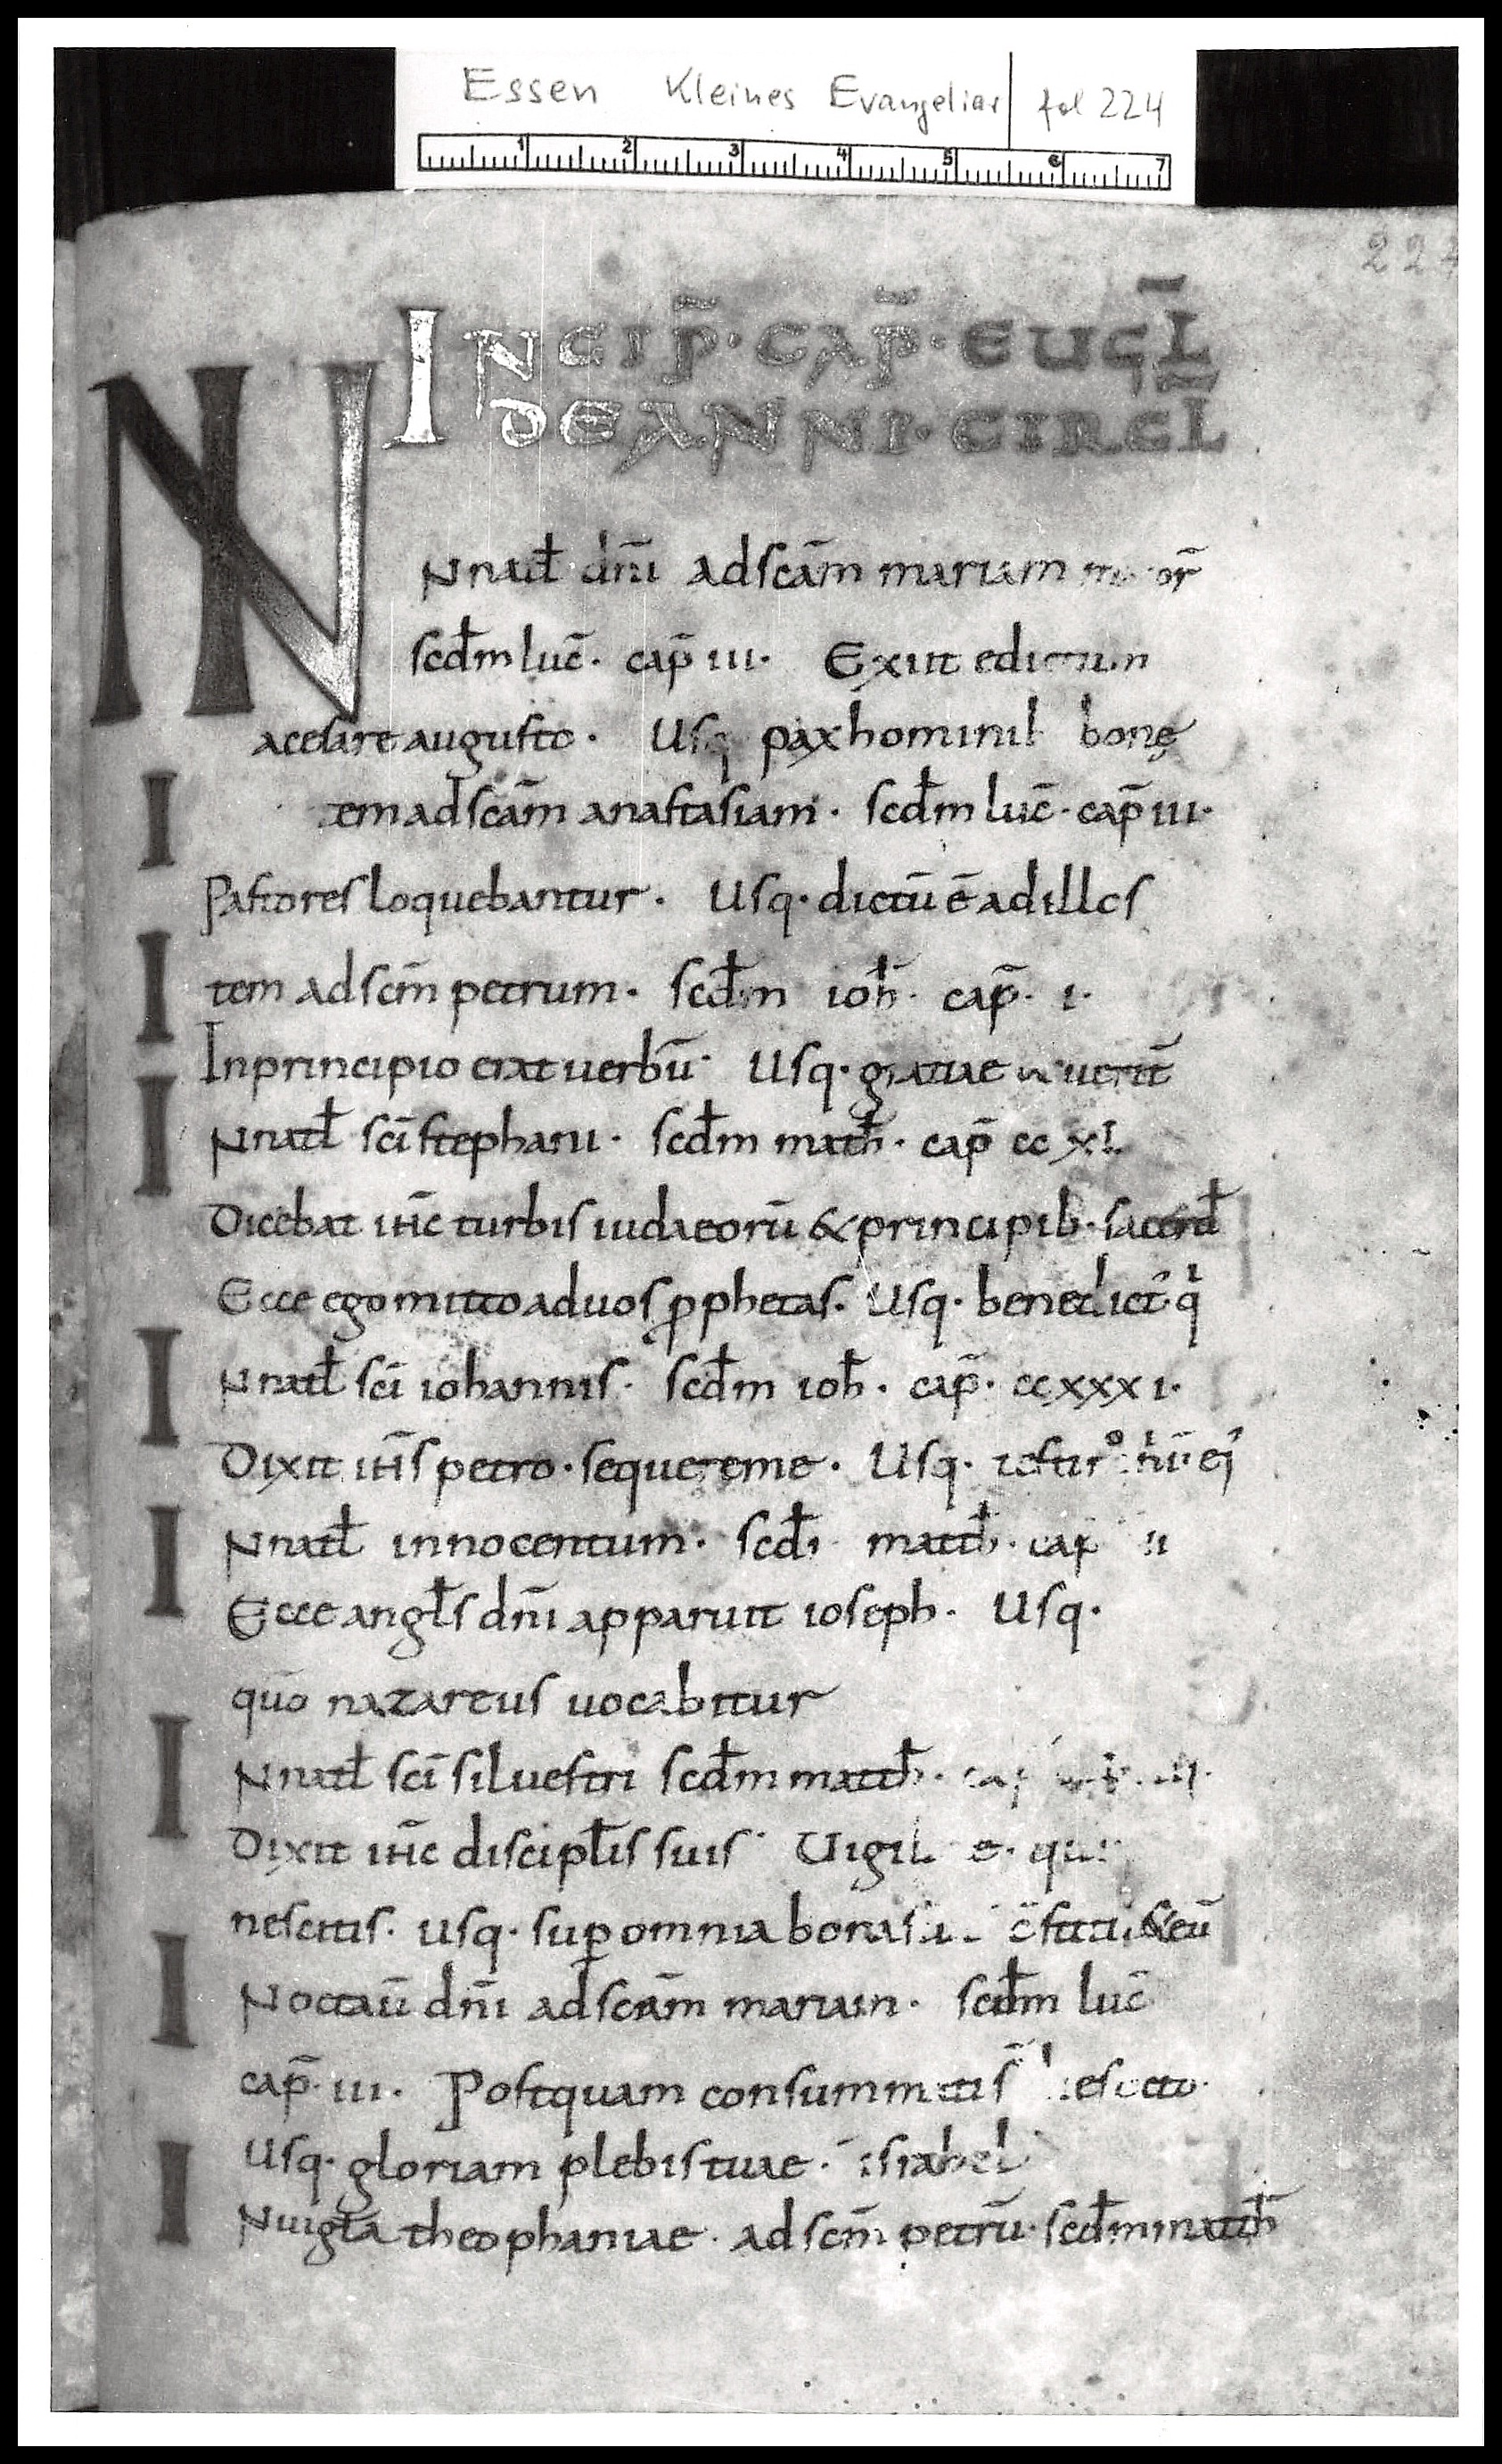 Essen Kleines Evangeliar fol 224
1 2 3 4 5 6 7
224
INCIP̃·CAP̃·EUGL̄
DEANNI·CIRCL̄
IN
Nnatł dñi adscãm mariam
scdm̄ luc̄· cap̃ iii· Exiit edictum
acesare augusto· Usq paxhominib bonę
I
tem adscãm anastasiam· scdm̄ luc̄· cap̃ iii·
Pastores loquebantur· Usq· dictū ē adillos
I
tem adscm̄ petrum· scdm̄ ioh̄· cap̃· i·
Inprincipio erat uerbū· Usq· gratiae & uerit̄
I
Nnatł sc̄i stephani· scdm̄ math̄· cap̃ cc xl
Dicebat ih̄c turbis iudaeorū & principib· sacerd̄
Ecce ego mitto aduos p̱phetas· Usq· benedict̄ q̍
I
Nnatł sc̄i iohannis· scdm̄ ioh̄· cap̃· ccxxxi·
Dixit ih̄s petro· sequereme· Usq·
I
Nnatł innocentum· scdm̄ matth̄· cap ii
Ecce angłs dñi apparuit ioseph· Usq·
quō nazareus uocabitur
I
Nnatł sc̄i siluestri scdm̄ matth̄· cap
Dixit ih̄c discipłis suis· Uigil
nescitis· usq· sup̱ omnia bona
I
Noctaū dñi adscãm mariam· scdm̄ luc̄
cap̃· iii· Postquam consummatis
Usq· gloriam plebis tuae· israhel
I
Nuigła theophaniae· adscm̄ petrū· scdm̄ matth̄